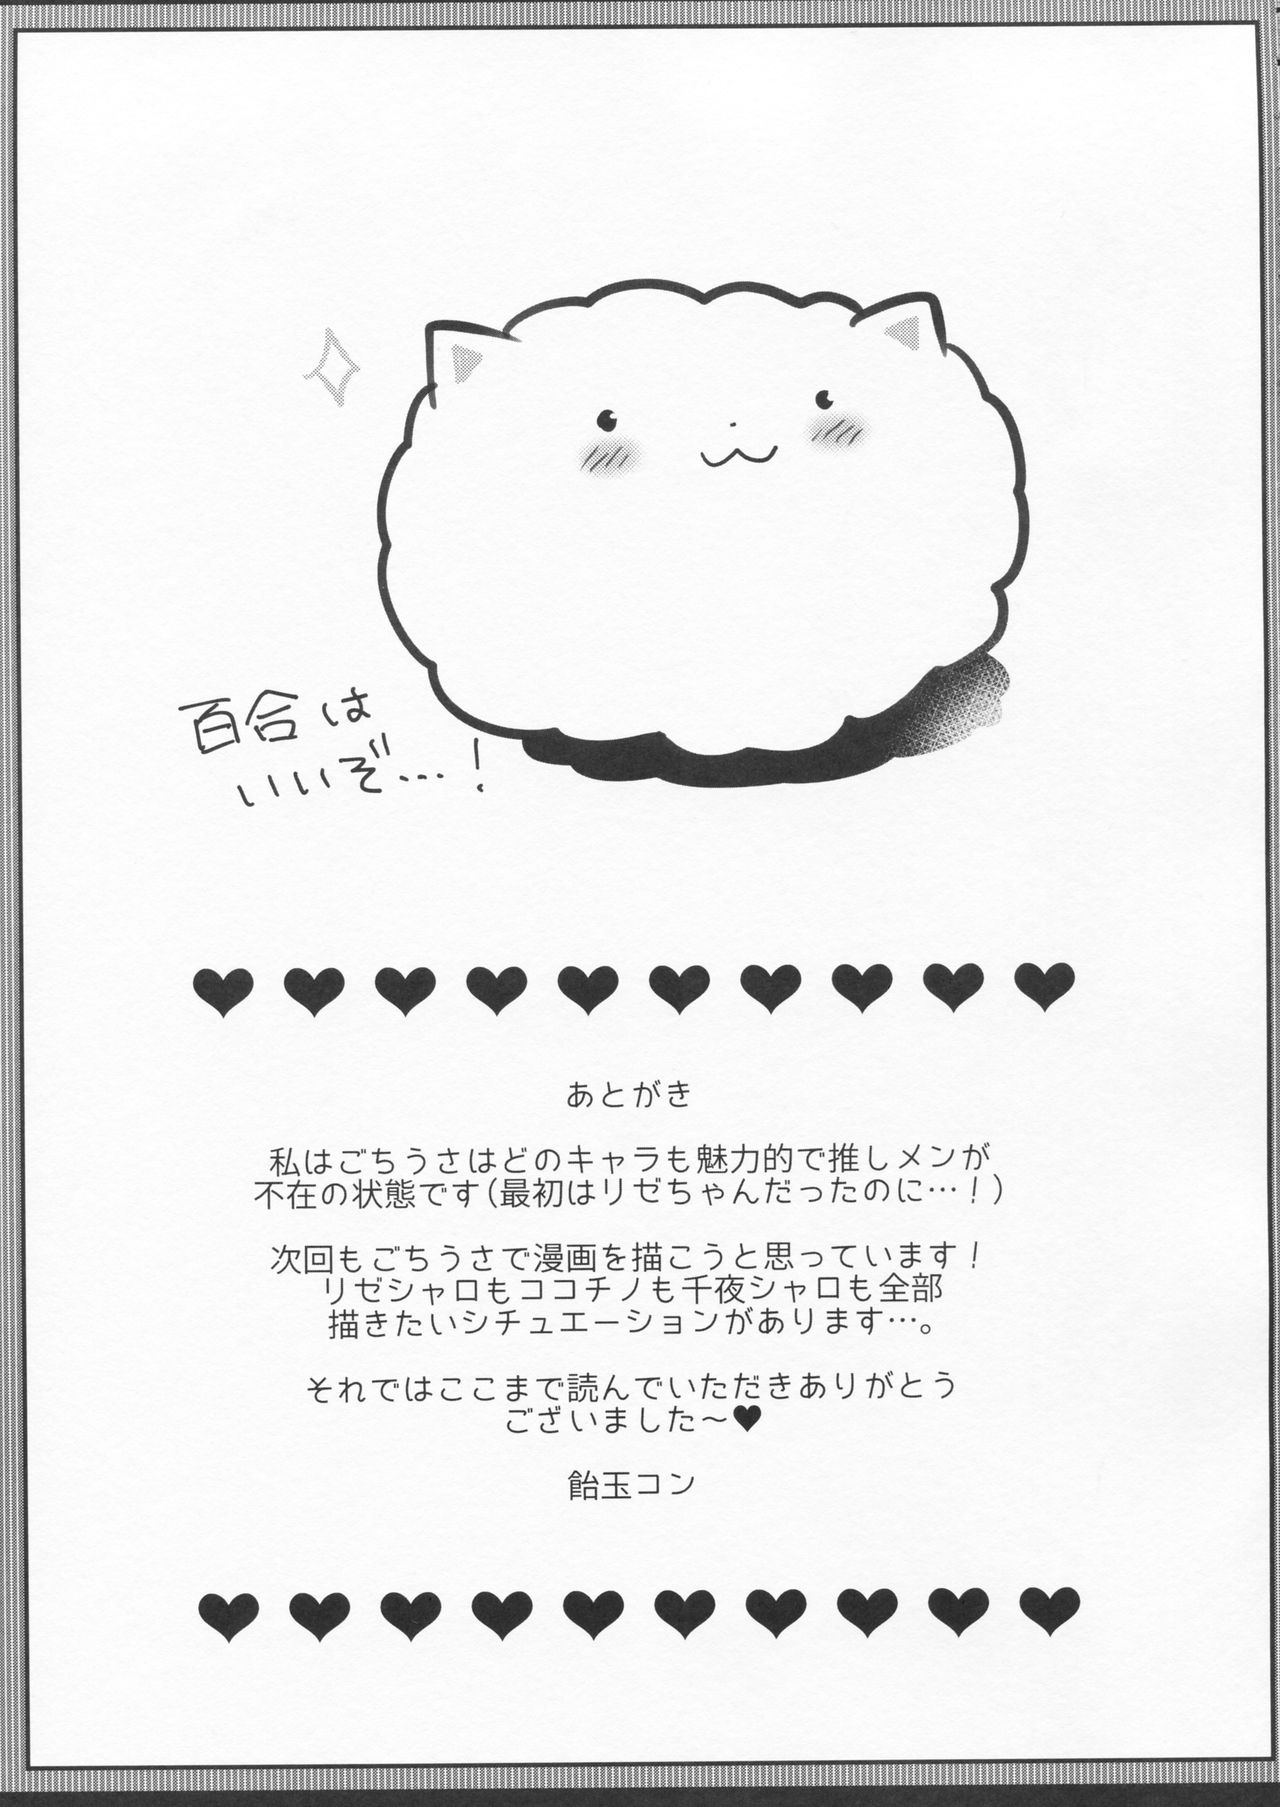 百合は
いいぞ…!
あとがき
私はごちうさはどのキャラも魅力的で推しメンが
不在の状態です(最初はリゼちゃんだったのに…!)
次回もごちうさで漫画を描こうと思っています!
リゼシャロもココチノも千夜シャロも全部
描きたいシチュエーションがあります…。
それではここまで読んでいただきありがとう
ございました～♥
飴玉コン